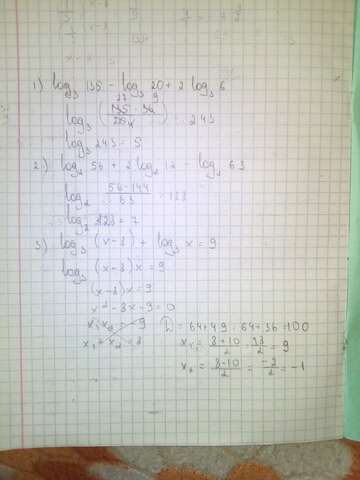 1) log₃ 135 - log₃ 20 + 2 log₃ 6
log₃ (135 · 36 / 20) = 243
log₃ 243 = 5
2) log₂ 56 + 2 log₂ 12 - log₂ 63
log₂ 56·144 / 63 = 128
log₂ 128 = 7
3) log₃ (x-8) + log₃ x = 9
log₃ (x-8)x = 9
(x-8)x = 9
x² - 8x - 9 = 0
x₁x₂ = -9 D = 64+4·9 = 64+36 = 100
x₁ + x₂ = 8 x₁ = 8+10 / 2 = 18 / 2 = 9
x₂ = 8-10 / 2 = -2 / 2 = -1